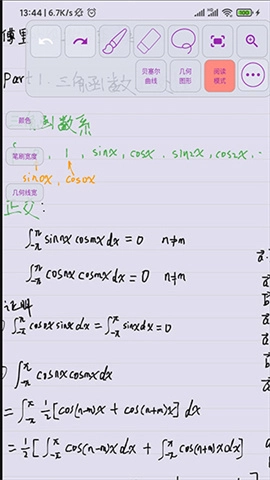 13:44 | 6.7K/s
100
傅里
贝塞尔曲线
几何图形
阅读模式
Part 1. 三角函数
颜色
函数系
笔刷宽度
, 1, sinx, cosx, sin2x, cos2x, ...
sin0x, cos0x
几何线宽
正交:
∫_{-π}^{π} sinnx cosmx dx = 0 n≠m
∫_{-π}^{π} cosnx cosmx dx = 0 n≠m
证明
∫_{-π}^{π} cos0x sinx dx = ∫_{-π}^{π} sinx dx = 0
∫_{-π}^{π} cosnx cosmx dx
= ∫_{-π}^{π} 1/2 [cos(n-m)x + cos(n+m)x] dx
= 1/2 [∫_{-π}^{π} cos(n-m)x dx + ∫_{-π}^{π} cos(n+m)x dx]